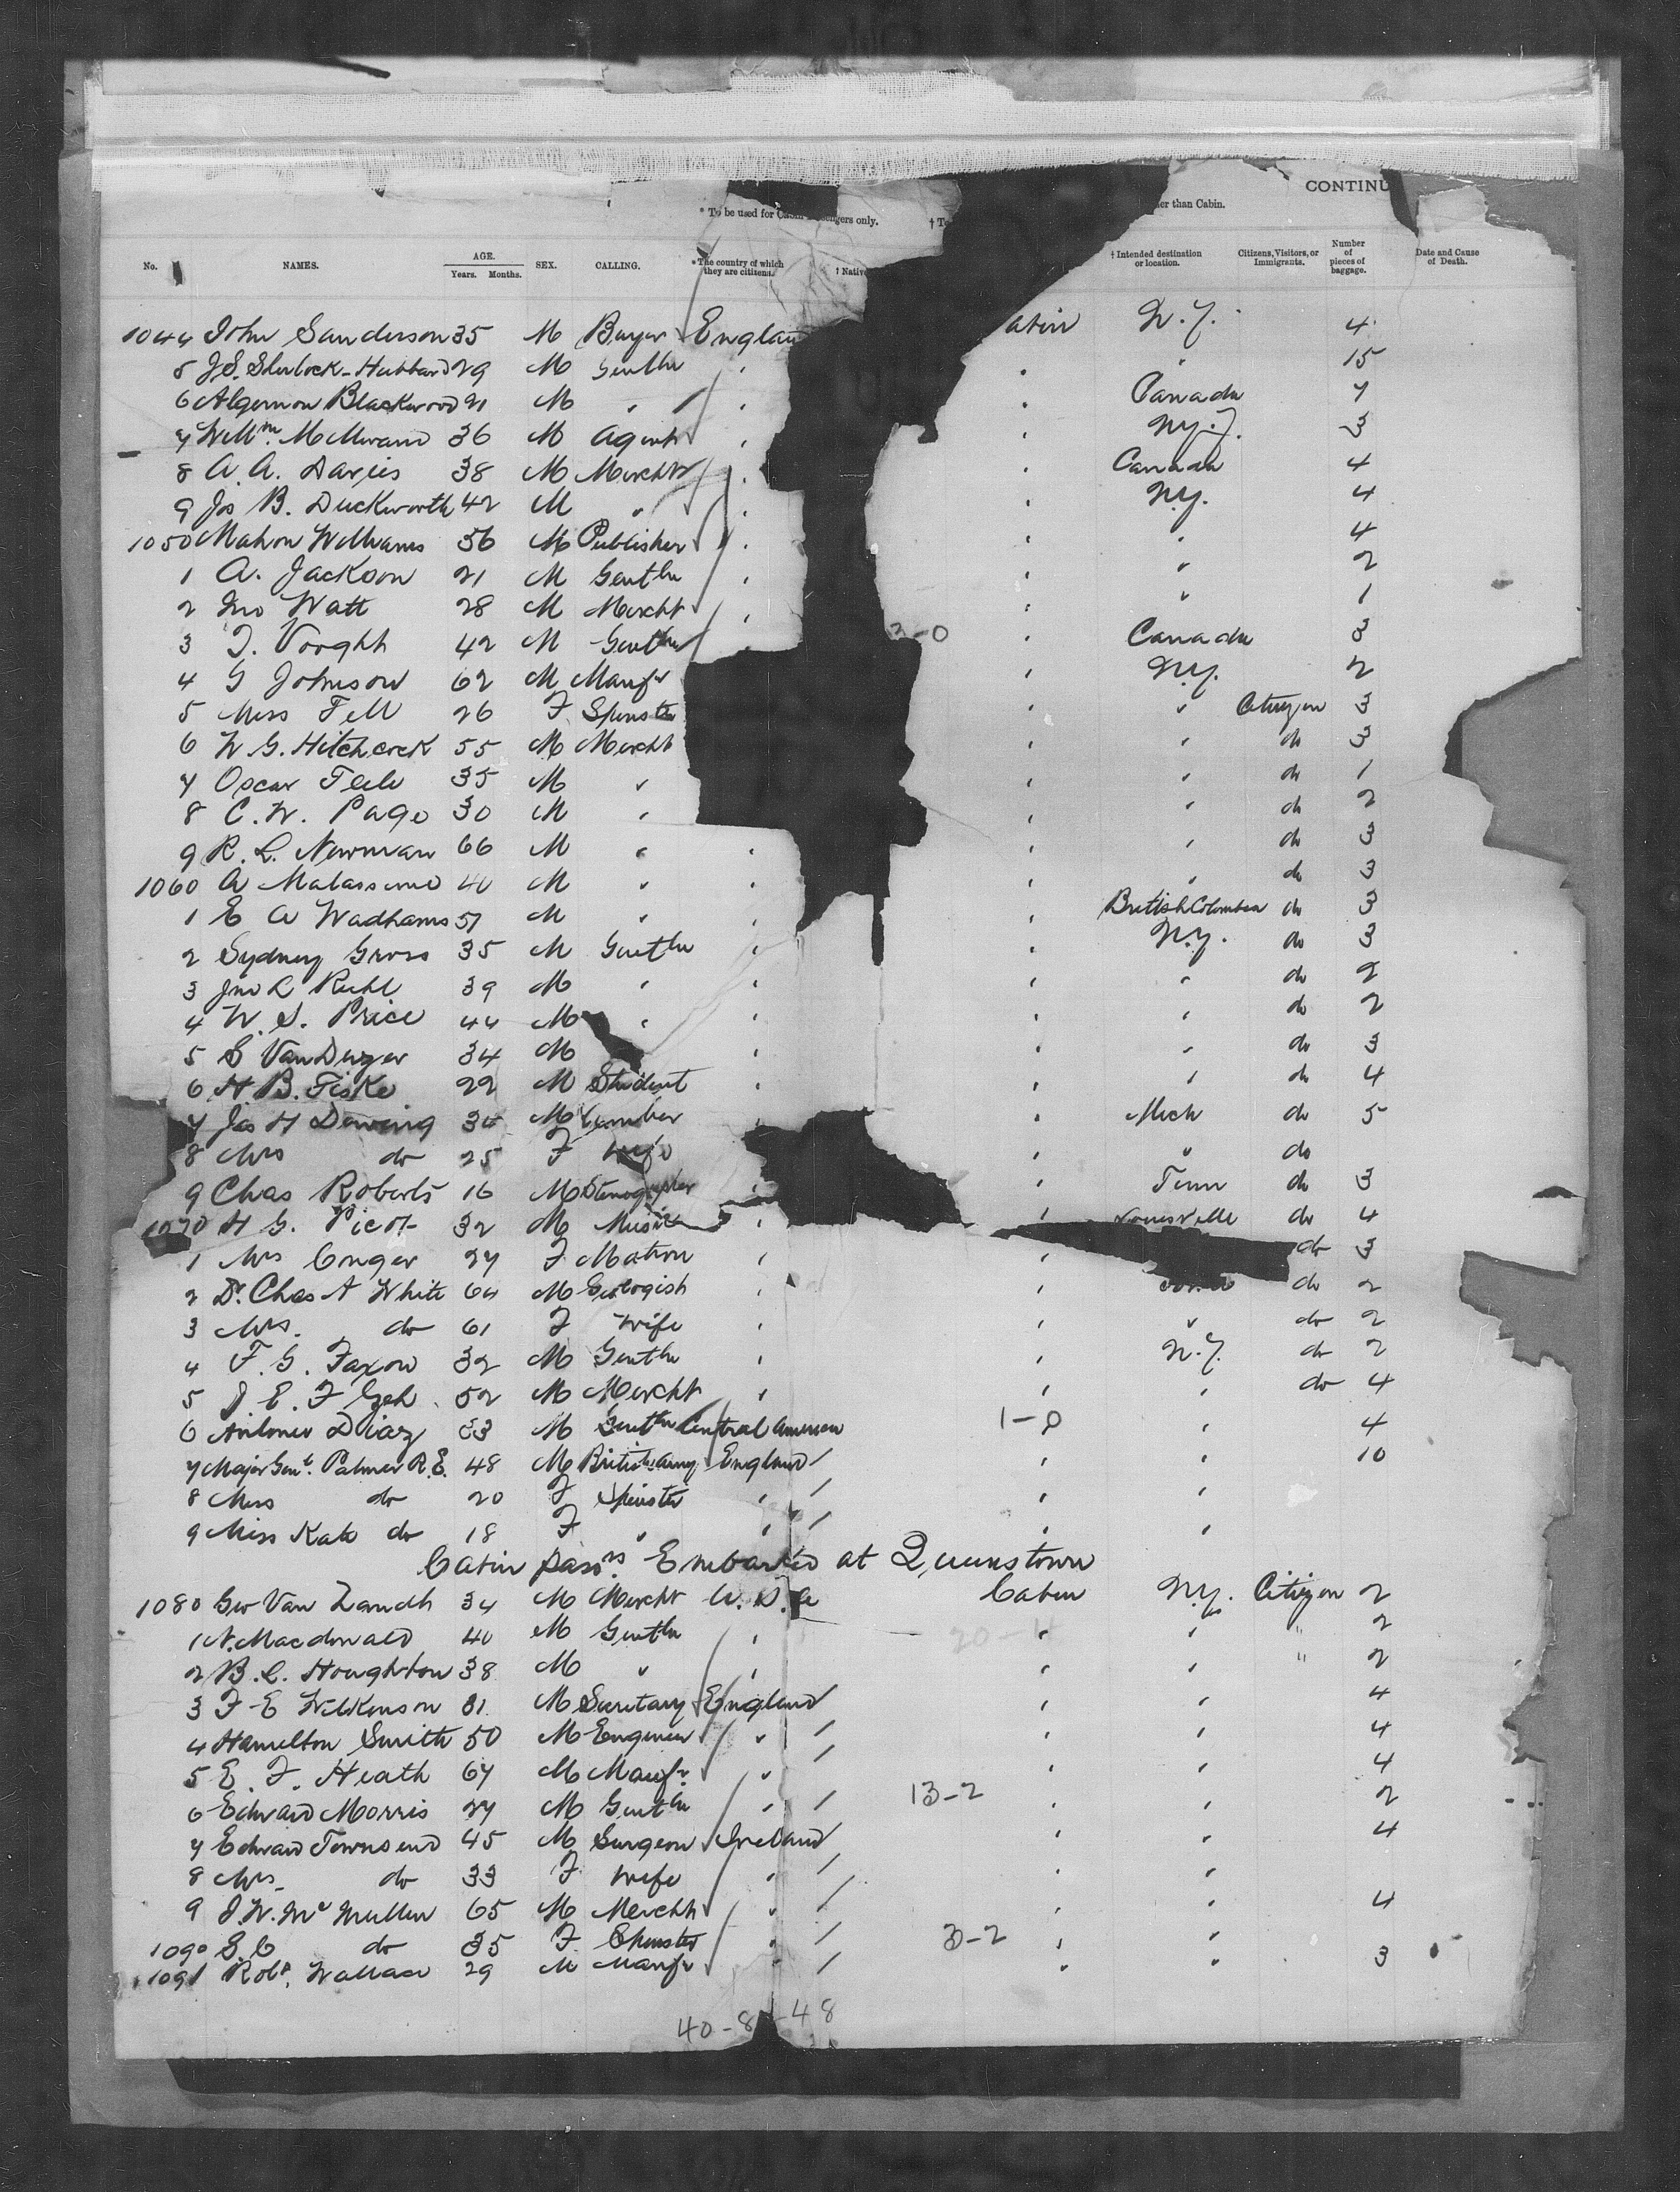 CONTINU
* To be used for Cabin Passengers only. † To her than Cabin.
No. NAMES. AGE. Years. Months. SEX. CALLING. * The country of which they are citizens. † Native † Intended destination or location. Citizens, Visitors, or Immigrants. Number of pieces of baggage. Date and Cause of Death.
1044 John Sanderson 35 M Buyer Englan abin N.Y. 4
5 J.S. Sherlock-Hubbard 29 M Gentln " " " 15
6 Algernon Blackwood 21 M " " " Canada 7
7 Willm. McMurans 36 M Agent " " N.Y. 3
8 A. A. Davies 38 M Mercht " " Canada 4
9 Jos B. Duckworth 42 M " " " N.Y. 4
1050 Mahon Williams 56 M Publisher " " " 4
1 A. Jackson 21 M Gentln " " " 2
2 Jno Watt 28 M Mercht " " " 1
3 T. Vooght 42 M Gentln " 2-0 " Canada 3
4 G Johnson 62 M Manfr " N.Y. 2
5 Miss Fell 26 F Spinster " " Citizen 3
6 W. G. Hitchcock 55 M Mercht " " do 3
7 Oscar 35 M " " " do 1
8 C. W. Page 30 M " " " do 2
9 R. L. Newman 66 M " " " " do 3
1060 A 40 M " " " " do 3
1 E A Wadhams 57 M " " " British Colombia do 3
2 Sydney Gross 35 M Gentln " " N.Y. do 3
3 Jno L Ruhl 39 M " " " " do 2
4 W. S. Price 44 M " " " " do 2
5 S VanDuzer 34 M " " " do 3
6 H. B. Fiske 22 M Student " " " do 4
7 Jas H Dewing 34 M Lumber " " Mich do 5
8 Mrs do 25 F wife " " do
9 Chas Roberts 16 M Stenographer " " Tenn do 3
1070 H G. Picot 32 M Music " " Louisville do 4
1 Mrs Conger 27 F Matron " " do 3
2 Dr. Chas A White 64 M Geologist " " do 2
3 Mrs. do 61 F wife " " " do 2
4 F. G. Faxon 32 M Gentln " " N.Y. do 2
5 J. E. F 52 M Mercht " " " do 4
6 Antonio Diaz 33 M Gentln Central American 1-0 " 4
7 Major Genl. Palmer R.E. 48 M British army England " " 10
8 Miss do 20 F Spinster " " "
9 Miss Kate do 18 F " " " "
Cabin passrs Embarked at Queenstown
1080 Geo Van Zandt 34 M Mercht U.S.A Cabin N.Y. Citizen 2
1 N. Macdonald 40 M Gentln " 20-4 " " " 2
2 B. L. Houghton 38 M " " " " " 2
3 F E Wilkinson 31 M Secretary England " " 4
4 Hamilton Smith 50 M Engineer " " " 4
5 E. F. Heath 67 M Manfr. " " " 4
6 Edward Morris 27 M Gentln " 13-2 " " 2
7 Edward Townsend 45 M Surgeon Ireland " " 4
8 Mrs do 33 F wife " " "
9 J. W. McMullen 65 M Mercht " " " 4
1090 S. C do 35 F Spinster " 3-2 " "
1091 Robt. Wallace 29 M Manfr " " " 3
40-8-48